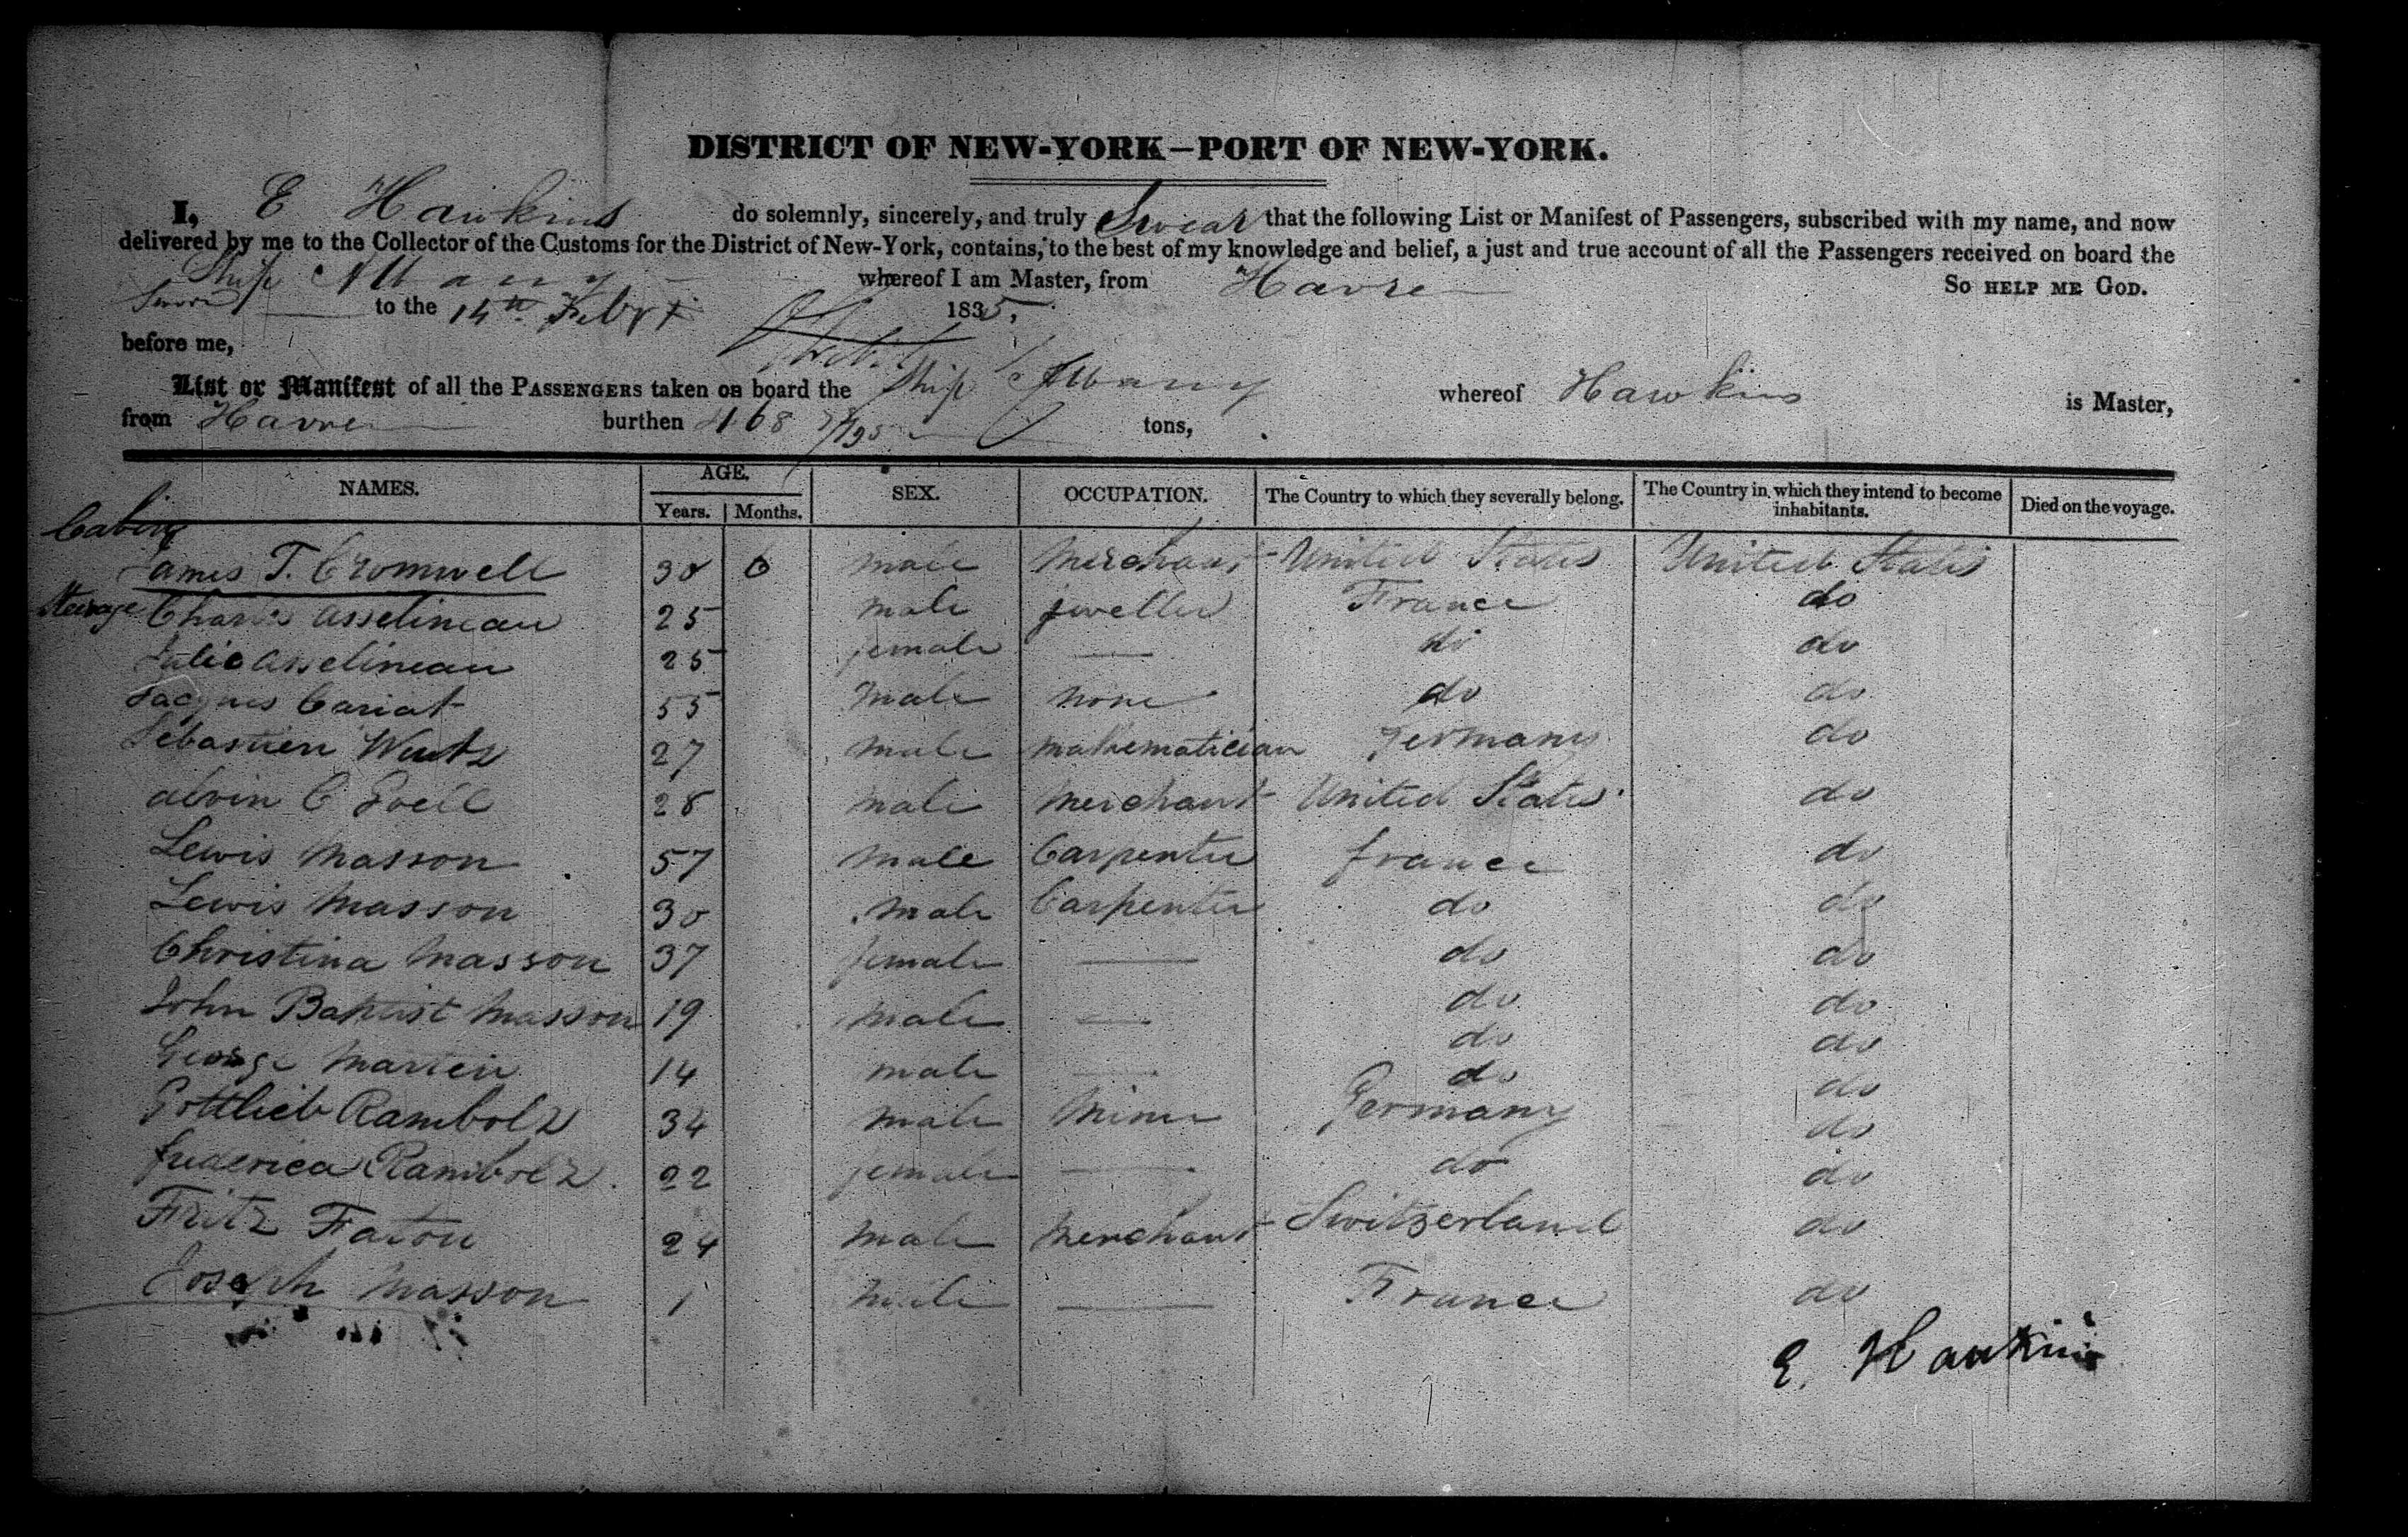 DISTRICT OF NEW-YORK—PORT OF NEW-YORK.
I, E Hawkins do solemnly, sincerely, and truly Swear that the following List or Manifest of Passengers, subscribed with my name, and now
delivered by me to the Collector of the Customs for the District of New-York, contains, to the best of my knowledge and belief, a just and true account of all the Passengers received on board the
Ship Albany whereof I am Master, from Havre So HELP ME GOD.
Sworn to the 14th Feby 1835,
before me,
List or Manifest of all the PASSENGERS taken on board the Ship Albany whereof Hawkins is Master,
from Havre burthen 468 /95 tons,
NAMES. AGE. SEX. OCCUPATION. The Country to which they severally belong. The Country in which they intend to become inhabitants. Died on the voyage.
Years. Months.
Cabin
James T. Cromwell 30 6 male Merchant United States United States
Steerage Charles Asselineau 25 male jweller France do
Julie Asselineau 25 female — do do
Jacques Cariat 55 male none do do
Sebastien Wentz 27 male mathematician Germany do
alvin C 28 male Merchant United States do
Lewis Masson 57 male Carpenter france do
Lewis Masson 30 male Carpenter do do
Christina Masson 37 female — do do
John Baptist Masson 19 male — do do
George Martein 14 male — do do
do do
Gottlieb Rambolz 34 male Miner Germany do
frederica Rambolz 22 female — do do
Fritz Faton 24 male Merchant Switzerland do
Joseph Masson 1 male — France do
E. Hawkins